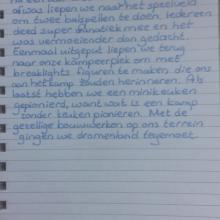 liepen we naar het speelveld
om twee balspellen te doen. Iedereen
deed super fanatiek mee en het
was vermoeiender dan gedacht.
Eenmaal uitgeput liepen we terug
naar onze kampeerplek om met
breaklights figuren te maken die ons
aan het kamp zouden herinneren. Als
laatst hebben we een minikeuken
gepionierd, want wat is een kamp
zonder keuken pionieren. Met de
gezellige bouwwerken op ons terrein
gingen we dromenland tegemoet.